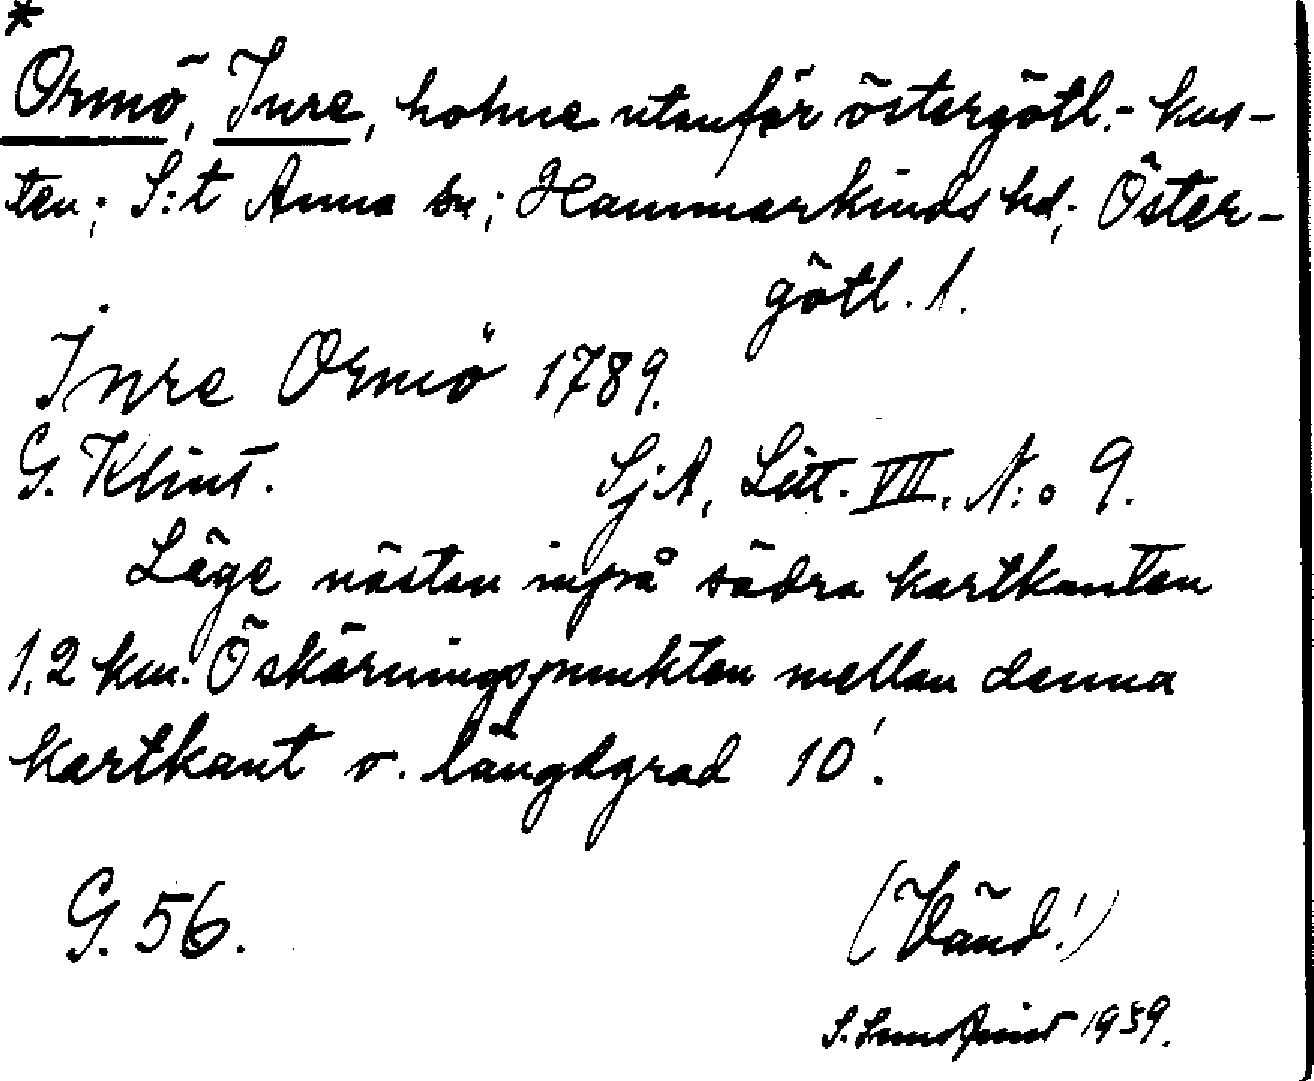 *
Ormö, Inre, holme utanför östergötl.- kus-
ten; S:t Anna sn; Hammarkinds hd; Öster-
götl. l.
Inre Ormö 1789.
G. Klint. SjA, Litt. VII. N:o 9.
Läge nästan inpå södra kartkanten
1,2 km. Ö skärningspunkten mellan denna
kartkant o. längdgrad 10'.
G. 56. (Vänd!)
S. 1959.